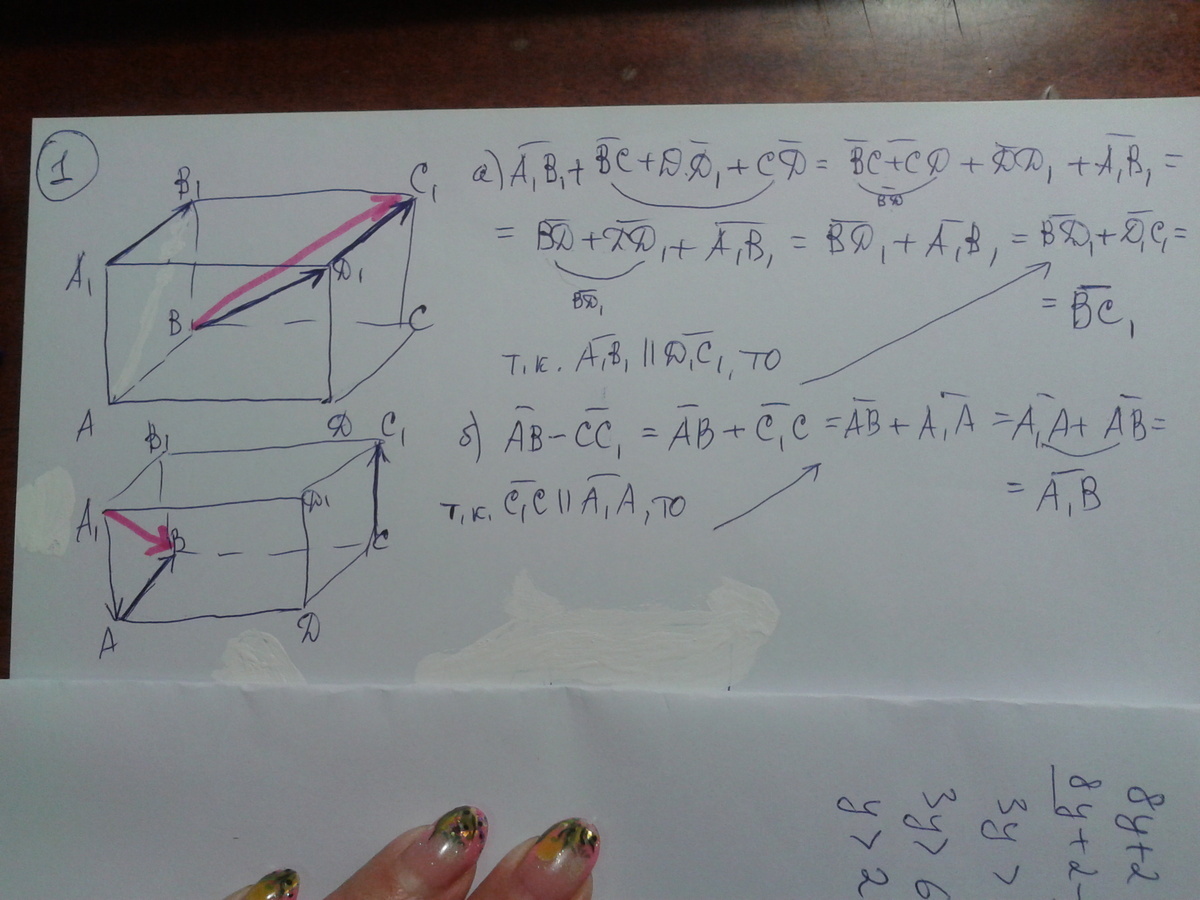 1
B₁
C₁
A₁
D₁
B
C
A
D
а) A̅₁B̅₁ + B̅C̅ + D̅D̅₁ + C̅D̅ = B̅C̅ + C̅D̅ + D̅D̅₁ + A̅₁B̅₁ =
B̅D̅
= B̅D̅ + D̅D̅₁ + A̅₁B̅₁ = B̅D̅₁ + A̅₁B̅₁ = B̅D̅₁ + D̅₁C̅₁ =
B̅D̅₁
= B̅C̅₁
т.к. A̅₁B̅₁ || D̅₁C̅₁, то
B₁
C₁
A₁
D₁
B
C
A
D
б) A̅B̅ − C̅C̅₁ = A̅B̅ + C̅₁C̅ = A̅B̅ + A̅₁A̅ = A̅₁A̅ + A̅B̅ =
= A̅₁B̅
т.к. C̅₁C̅ || A̅₁A̅, то
8y+2
8y+2-
3y >
3y > 6
y > 2